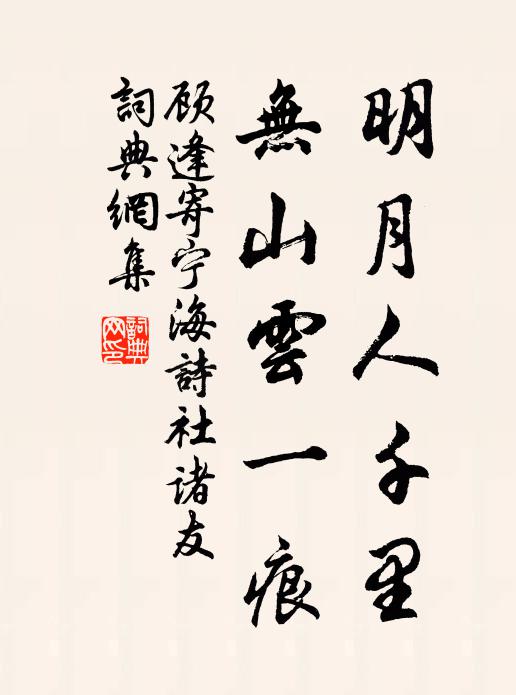 明月人千里
無山雲一痕
顾逢寄宁海詩社诸友
詞典網集
詞典網印